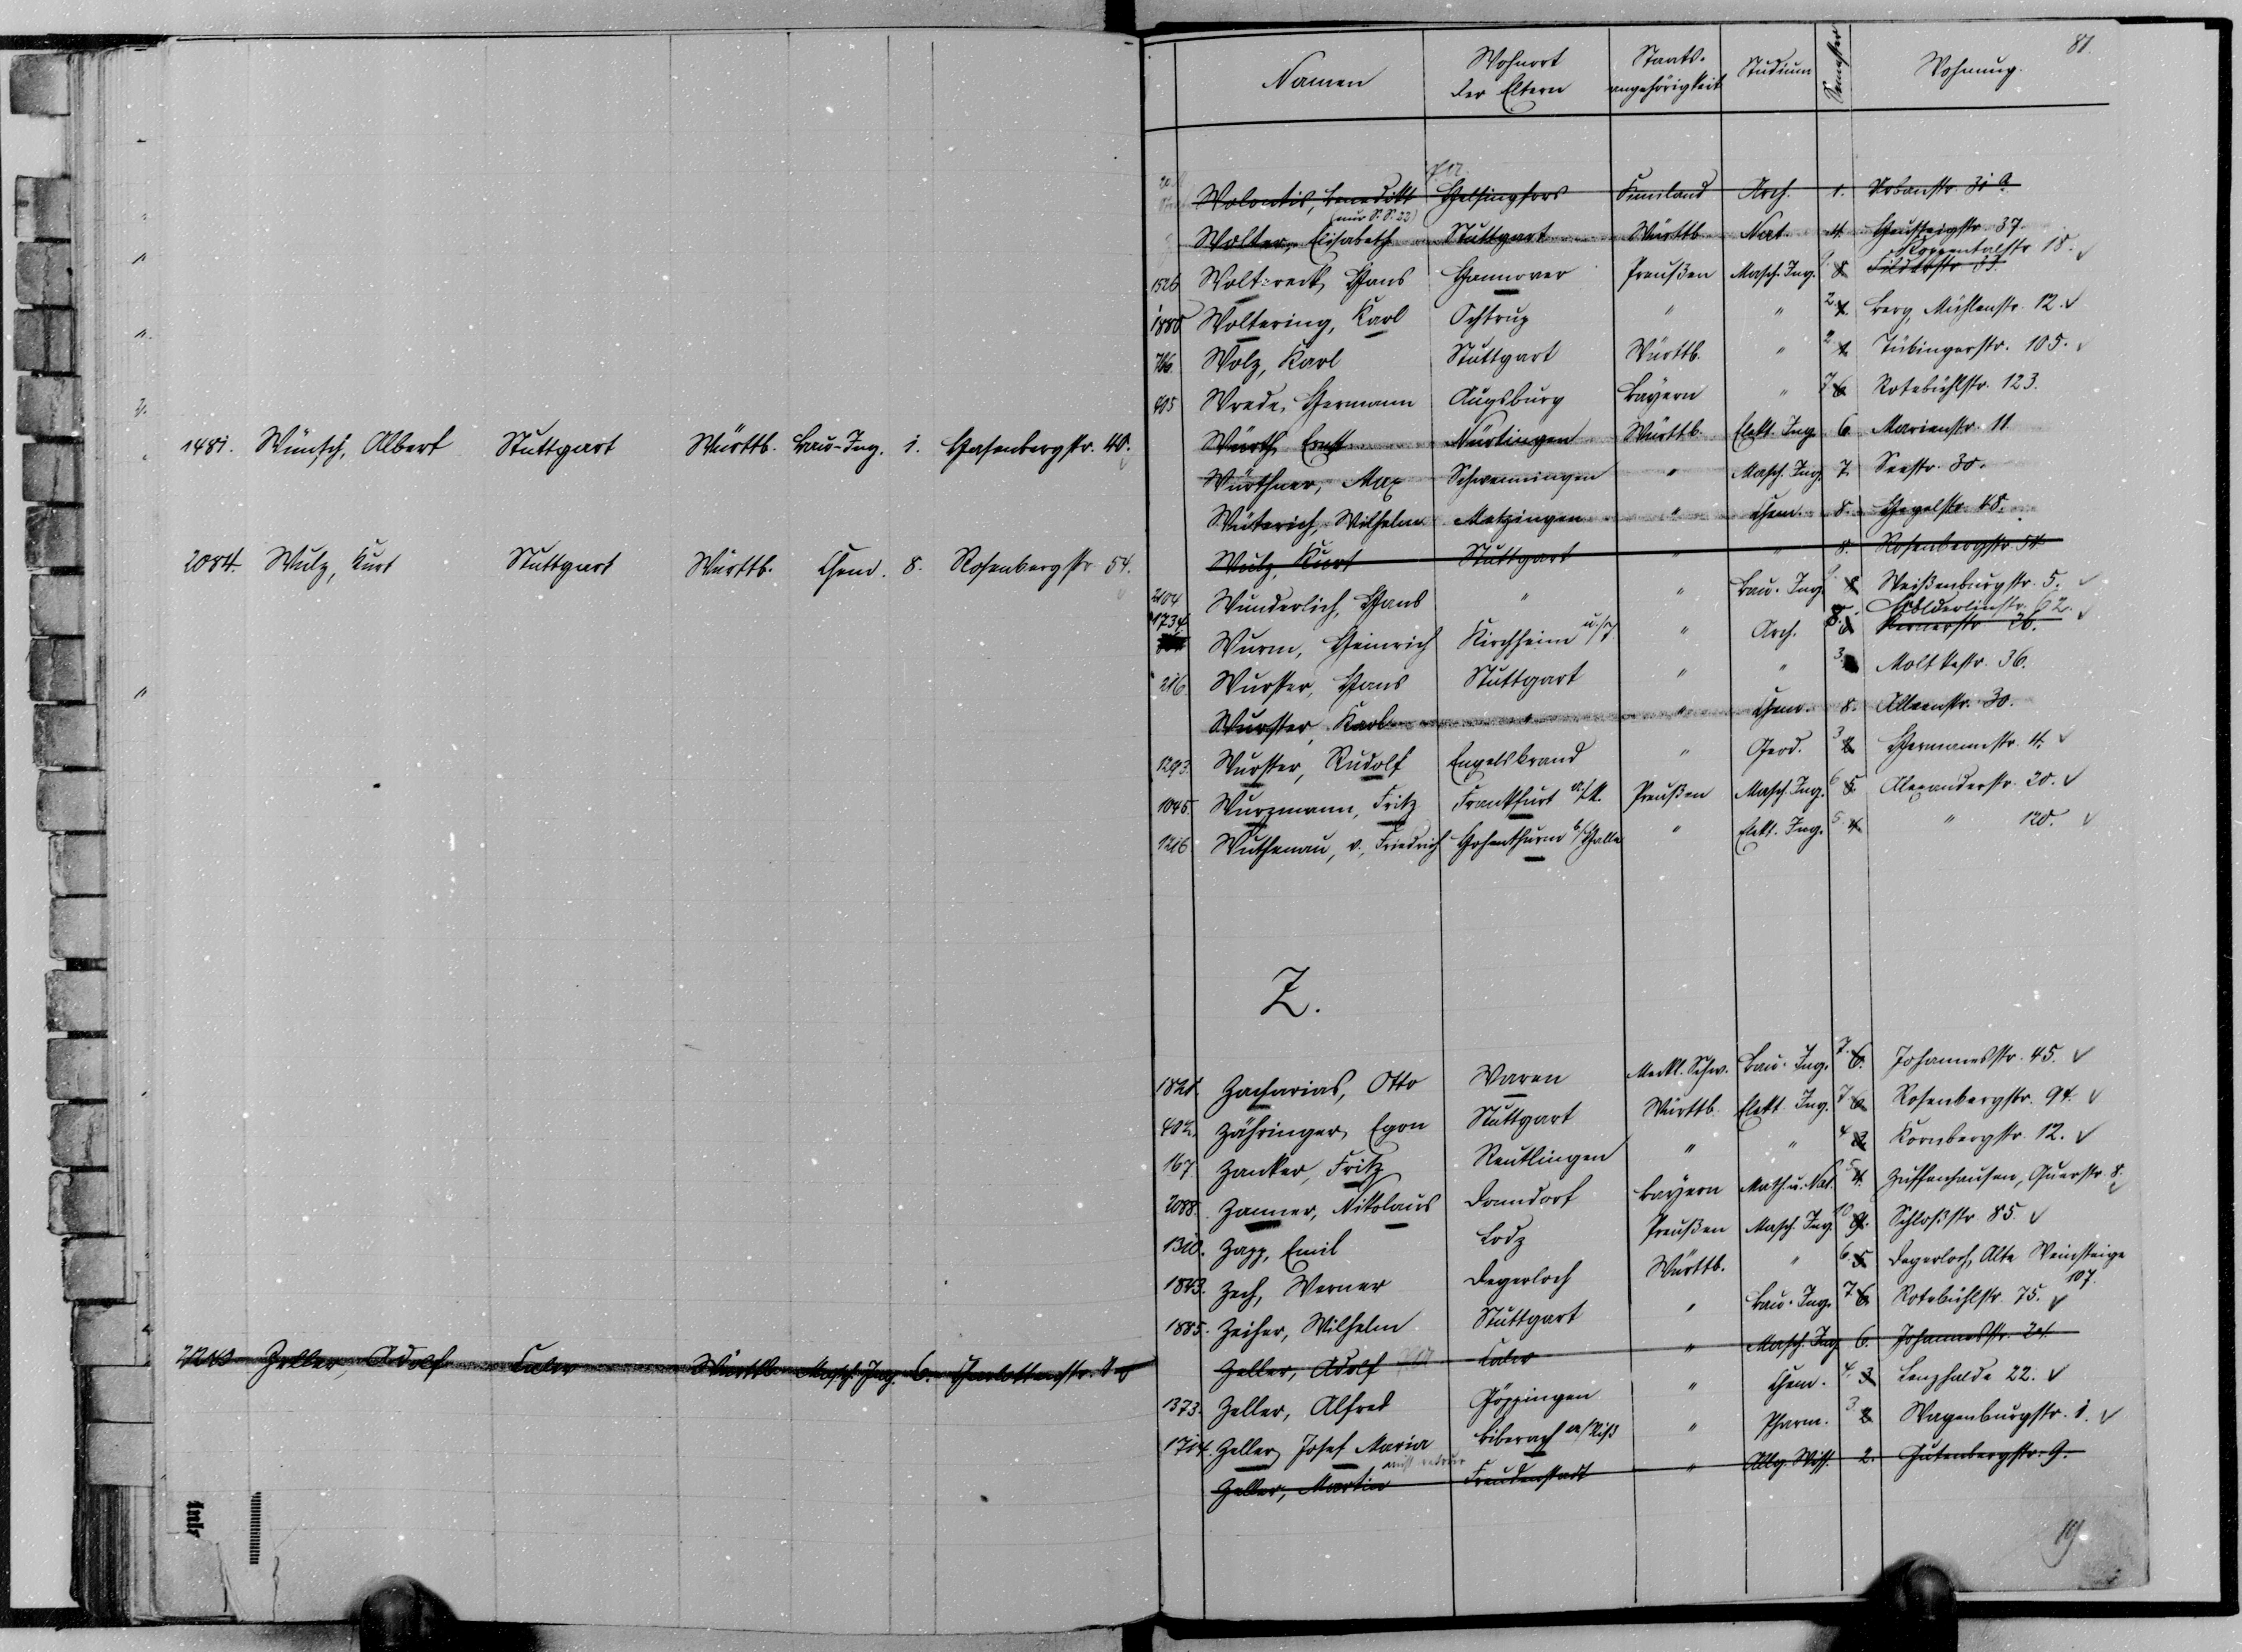 1481. Wünsch, Albert Stuttgart Württb. Bau-Ing. 1. Hasenbergstr. 40.
2084. Wulz, Kurt Stuttgart Württb. Chem. 8. Rosenbergstr. 54.
Zeller, Adolf Calw Württb. Masch. Ing. 6. Charlottenstr.
81.
Namen Wohnort der Eltern Staats-angehörigkeit Studium Semester Wohnung.
Wolontis, Benedikt Helsingfors Finnland Arch. 1. Urbanstr. 31 a
(nur S.S. 22)
Wolter, Elisabeth Stuttgart Württb. Nat. 4. Heusteigstr. 37.
Koppentalstr. 18.
1526 Woltereck, Hans Hannover Preußen Masch. Ing. 9. 8.
1880 Woltering, Karl Ochtrup " " 2. 1. Berg, Mühlenstr. 12.
766. Wolz, Karl Stuttgart Württb. " 2. 1. Tübingerstr. 105.
405 Wrede, Hermann Augsburg Bayern " 7. 6. Rotebühlstr. 123.
Würth, Ernst Nürtingen Württb. Elekt. Ing. 6. Marienstr. 11
Würthner, Max Schwenningen " Masch. Ing. 7. Seestr. 30.
Wüterich, Wilhelm Metzingen " Chem. 8. Hegelstr. 48.
Wulz, Kurt Stuttgart " " 8. Rosenbergstr. 54
2104 Wunderlich, Hans " " Bau-Ing. Weißenburgstr. 5.
Hölderlinstr. 62.
1734 Wurm, Heinrich Kirchheim u/T. " Arch. 8. Wernerstr. 26.
216 Wurster, Hans Stuttgart " " 3. Moltkestr. 36.
Wurster, Karl " " Chem. 8. Alleenstr. 30.
1293. Wurster, Rudolf Engelsbrand " Geod. 3. 2. Hermannstr. 4.
1045. Wurzmann, Fritz Frankfurt a/M. Preußen Masch. Ing. 6. 5. Alexanderstr. 20.
1216 Wuthenau, v., Friedrich Hohenthurm b/Halle " Elekt. Ing. 5. 4. " 120.
Z.
1821. Zacharias, Otto Waren Meckl. Schw. Bau-Ing. 7. 6. Johannesstr. 45.
402. Zähringer, Egon Stuttgart Württb. Elekt. Ing. 7. 6. Rosenbergstr. 94.
167. Zanker, Fritz Reutlingen " " 4. 3. Kornbergstr. 12.
2088. Zanner, Nikolaus Donndorf Bayern Math. u. Nat. 5. 4. Zuffenhausen, Querstr. 8.
1310. Zapp, Emil Lodz Preußen Masch. Ing. 10. 9. Schloßstr. 85.
1843. Zech, Werner Degerloch Württb. " 6. 5. Degerloch, Alte Weinsteige 107.
1885. Zeiher, Wilhelm Stuttgart " Bau-Ing. 7. 6. Rotebühlstr. 75.
Zeller, Adolf Calw " Masch. Ing. 6. Johannesstr.
1373. Zeller, Alfred Göppingen " Chem. 4. 3. Lenzhalde 22.
1714. Zeller, Josef Maria Biberach a/Riß " Pharm. 3. 2. Wagenburgstr. 1.
Zeller, Martin Freudenstadt " Allg. Wiss. 2. Gutenbergstr. 9.